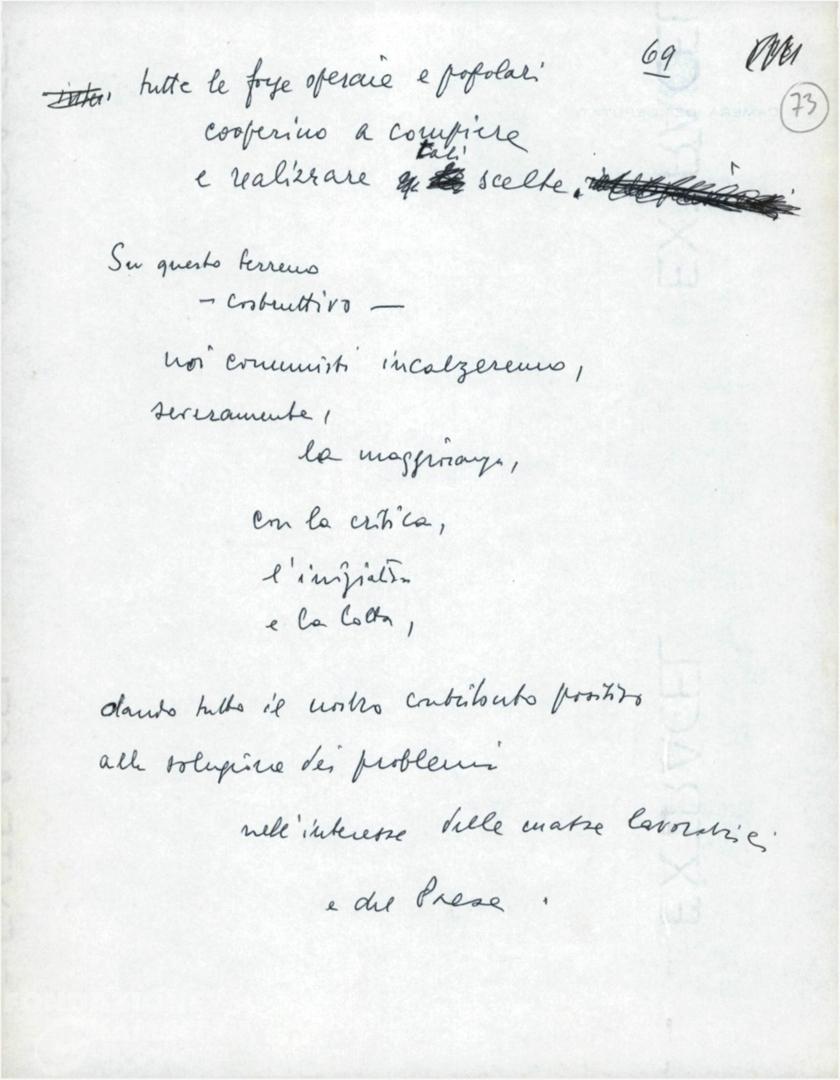 69
73
tutte le forze operaie e popolari
cooperino a compiere
tali
e realizzare scelte.
Su questo terreno
- costruttivo -
noi comunisti incalzeremo,
severamente,
la maggioranza,
con la critica,
l'iniziativa
e la lotta,
dando tutto il nostro contributo positivo
alla soluzione dei problemi
nell'interesse delle masse lavoratrici
e del Paese.